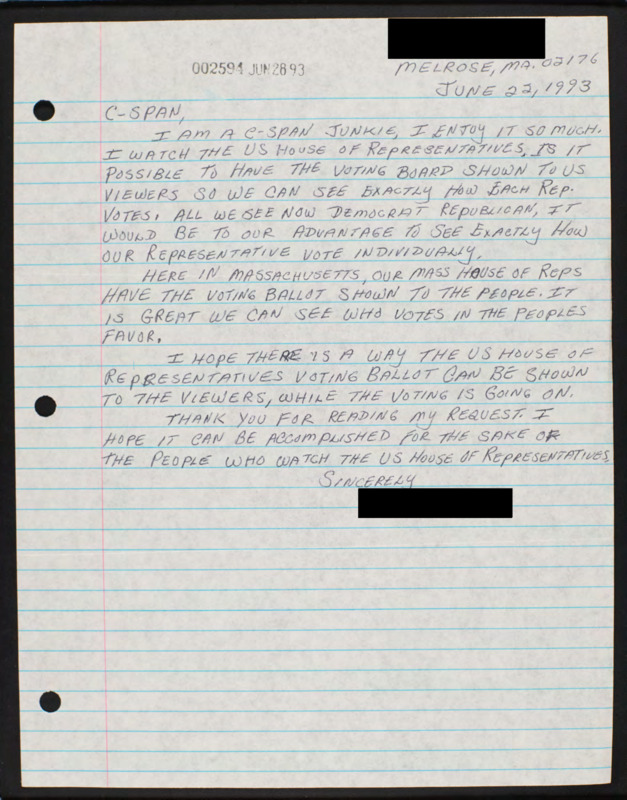 002594 JUN 28 93
MELROSE, MA. 02176
JUNE 22, 1993
C-SPAN,
I AM A C-SPAN JUNKIE, I ENJOY IT SO MUCH.
I WATCH THE US HOUSE OF REPRESENTATIVES, IS IT
POSSIBLE TO HAVE THE VOTING BOARD SHOWN TO US
VIEWERS SO WE CAN SEE EXACTLY HOW EACH REP.
VOTES. ALL WE SEE NOW DEMOCRAT REPUBLICAN, IT
WOULD BE TO OUR ADVANTAGE TO SEE EXACTLY HOW
OUR REPRESENTATIVE VOTE INDIVIDUALLY.
HERE IN MASSACHUSETTS, OUR MASS HOUSE OF REPS
HAVE THE VOTING BALLOT SHOWN TO THE PEOPLE. IT
IS GREAT WE CAN SEE WHO VOTES IN THE PEOPLES
FAVOR.
I HOPE THERE IS A WAY THE US HOUSE OF
REPRESENTATIVES VOTING BALLOT CAN BE SHOWN
TO THE VIEWERS, WHILE THE VOTING IS GOING ON.
THANK YOU FOR READING MY REQUEST. I
HOPE IT CAN BE ACCOMPLISHED FOR THE SAKE OF
THE PEOPLE WHO WATCH THE US HOUSE OF REPRESENTATIVES.
SINCERELY